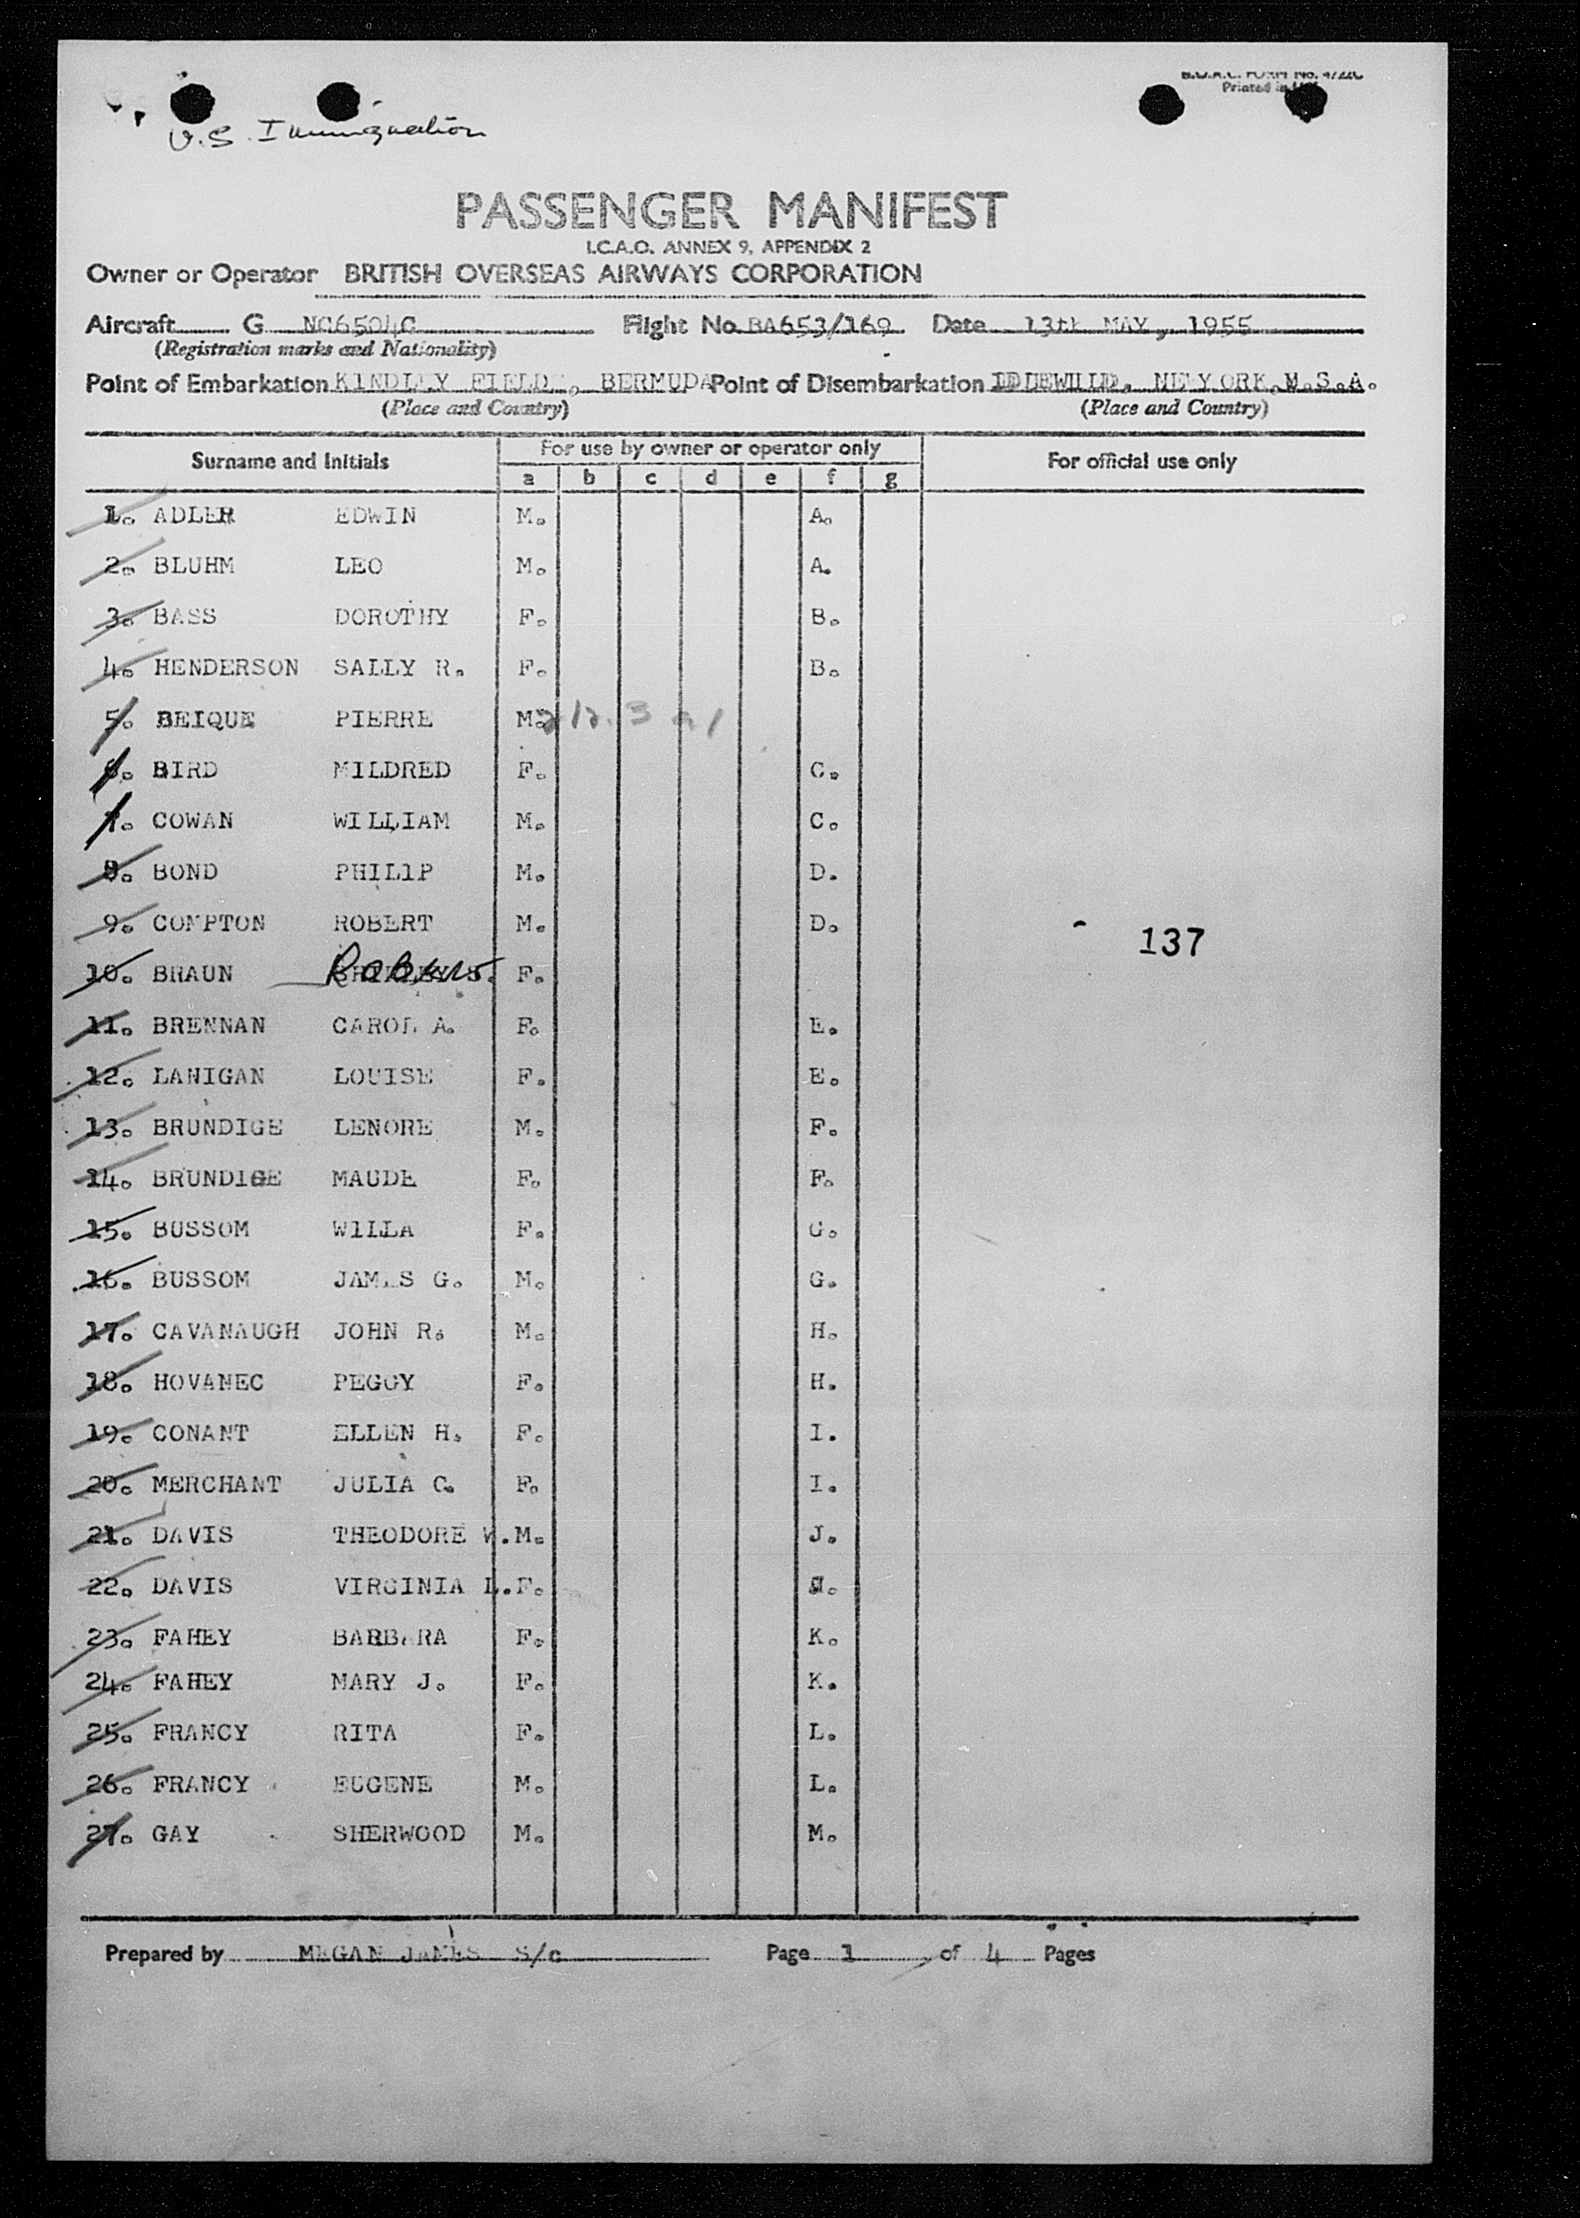 B.O.A.C. FORM No. 4722C
Printed in
U.S. Immigration
PASSENGER MANIFEST
I.C.A.O. ANNEX 9, APPENDIX 2
Owner or Operator BRITISH OVERSEAS AIRWAYS CORPORATION
Aircraft G NC6504C Flight No. BA653/169 Date 13th MAY, 1955
(Registration marks and Nationality)
Point of Embarkation KINDLEY FIELD, BERMUDA Point of Disembarkation IDLEWILD, NEW YORK, U.S.A.
(Place and Country) (Place and Country)
Surname and Initials For use by owner or operator only For official use only
a b c d e f g
1. ADLER EDWIN M. A.
2. BLUHM LEO M. A.
3. BASS DOROTHY F. B.
4. HENDERSON SALLY R. F. B.
5. BEIQUE PIERRE M.
6. BIRD MILDRED F. C.
7. COWAN WILLIAM M. C.
8. BOND PHIL1P M. D.
9. COMPTON ROBERT M. D.
137
10. BRAUN F.
11. BRENNAN CAROL A. F. E.
12. LANIGAN LOUISE F. E.
13. BRUNDIGE LENORE M. F.
14. BRUND1GE MAUDE F. F.
15. BUSSOM W1LLA F. G.
16. BUSSOM JAMES G. M. G.
17. CAVANAUGH JOHN R. M. H.
18. HOVANEC PEGGY F. H.
19. CONANT ELLEN H. F. I.
20. MERCHANT JULIA C. F. I.
21. DAVIS THEODORE W. M. J.
22. DAVIS VIRGINIA L. F. J.
23. FAHEY BARBARA F. K.
24. FAHEY MARY J. F. K.
25. FRANCY RITA F. L.
26. FRANCY EUGENE M. L.
27. GAY SHERWOOD M. M.
Prepared by MEGAN JAMES S/c Page 1 of 4 Pages